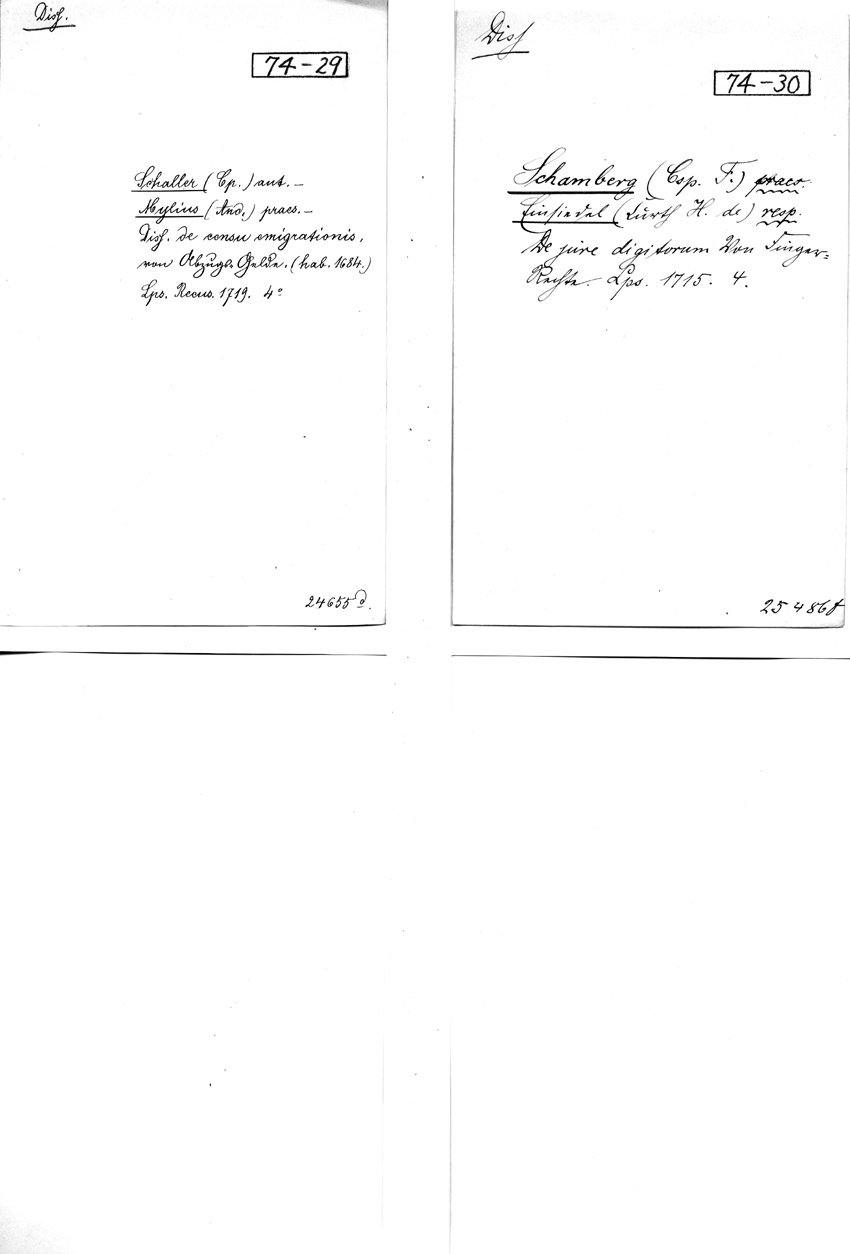 Diss.
74-29
Schaller (Cp.) aut. -
Mylius (And.) praes. -
Diss. de censu emigrationis,
von Abzugs-Gelde. (hab. 1684.)
Lps. Recus. 1719. 4°
24655
Diss
74-30
Schamberg (Csp. F.) praes.
Einsiedel (Curth H. de) resp.
De jure digitorum Von Finger-
Rechte. Lps. 1715. 4.
25486